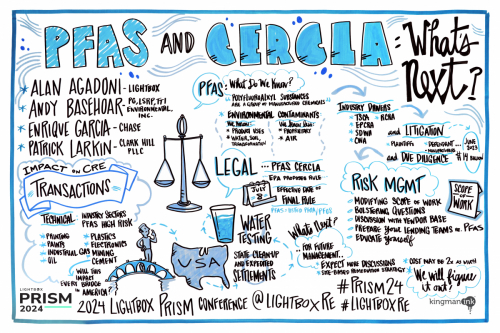 PFAS AND CERCLA: What's Next?
* ALAN AGADONI - LIGHTBOX
* ANDY BASEHOAR - PG, LSRP, TFI ENVIRONMENTAL, INC.
* ENRIQUE GARCIA - CHASE
* PATRICK LARKIN - CLARK HILL PLLC
IMPACT ON CRE
TRANSACTIONS
TECHNICAL
INDUSTRY SECTORS
PFAS HIGH RISK
* PAINTING
* PAINTS
* INDUSTRIAL GAS
* PLASTICS
* ELECTRONICS
* WINDING
WILL THIS
IMPACT
EVERY BRIDGE
IN AMERICA?
PFAS: What Do We Know?
SUBSTANCES
ARE A GROUP of MANUFACTURED CHEMICALS
ENVIRONMENTAL CONTAMINANTS
* PRODUCT USES
* WATER, SOIL
* AIR
LEGAL... PFAS CERCLA
EPA PROPOSED RULE
JULY
8
EFFECTIVE DATE OF
FINAL RULE
WATER
TESTING
STATE CLEAN UP
AND EXPEDITED
SETTLEMENTS
USA
What's Next?
FOR FUTURE
MANAGEMENT...
EXPECT MORE DISCUSSIONS
INDUSTRY DRIVERS
TSCA
RCRA
EPCRA
SDWA
CWA
and LITIGATION
PLAINTIFFS
DEFENDANT
MANUFACTURERS
JUNE
2023
and DUE DILIGENCE
RISK MGMT
MODIFYING SCOPE OF WORK
BOLSTERING QUESTIONS
DISCUSSION WITH VENDOR BASE
PREPARE YOUR LENDING TEAMS on PFAS
EDUCATE yourself
SCOPE
of
WORK
COST MAY BE 2x AS MUCH
We will figure
it out!
#PRISM24
#LIGHTBOXRE
LIGHTBOX
PRISM
2024
2024 LIGHTBOX PRISM CONFERENCE @LIGHTBOXRE
kingmanink